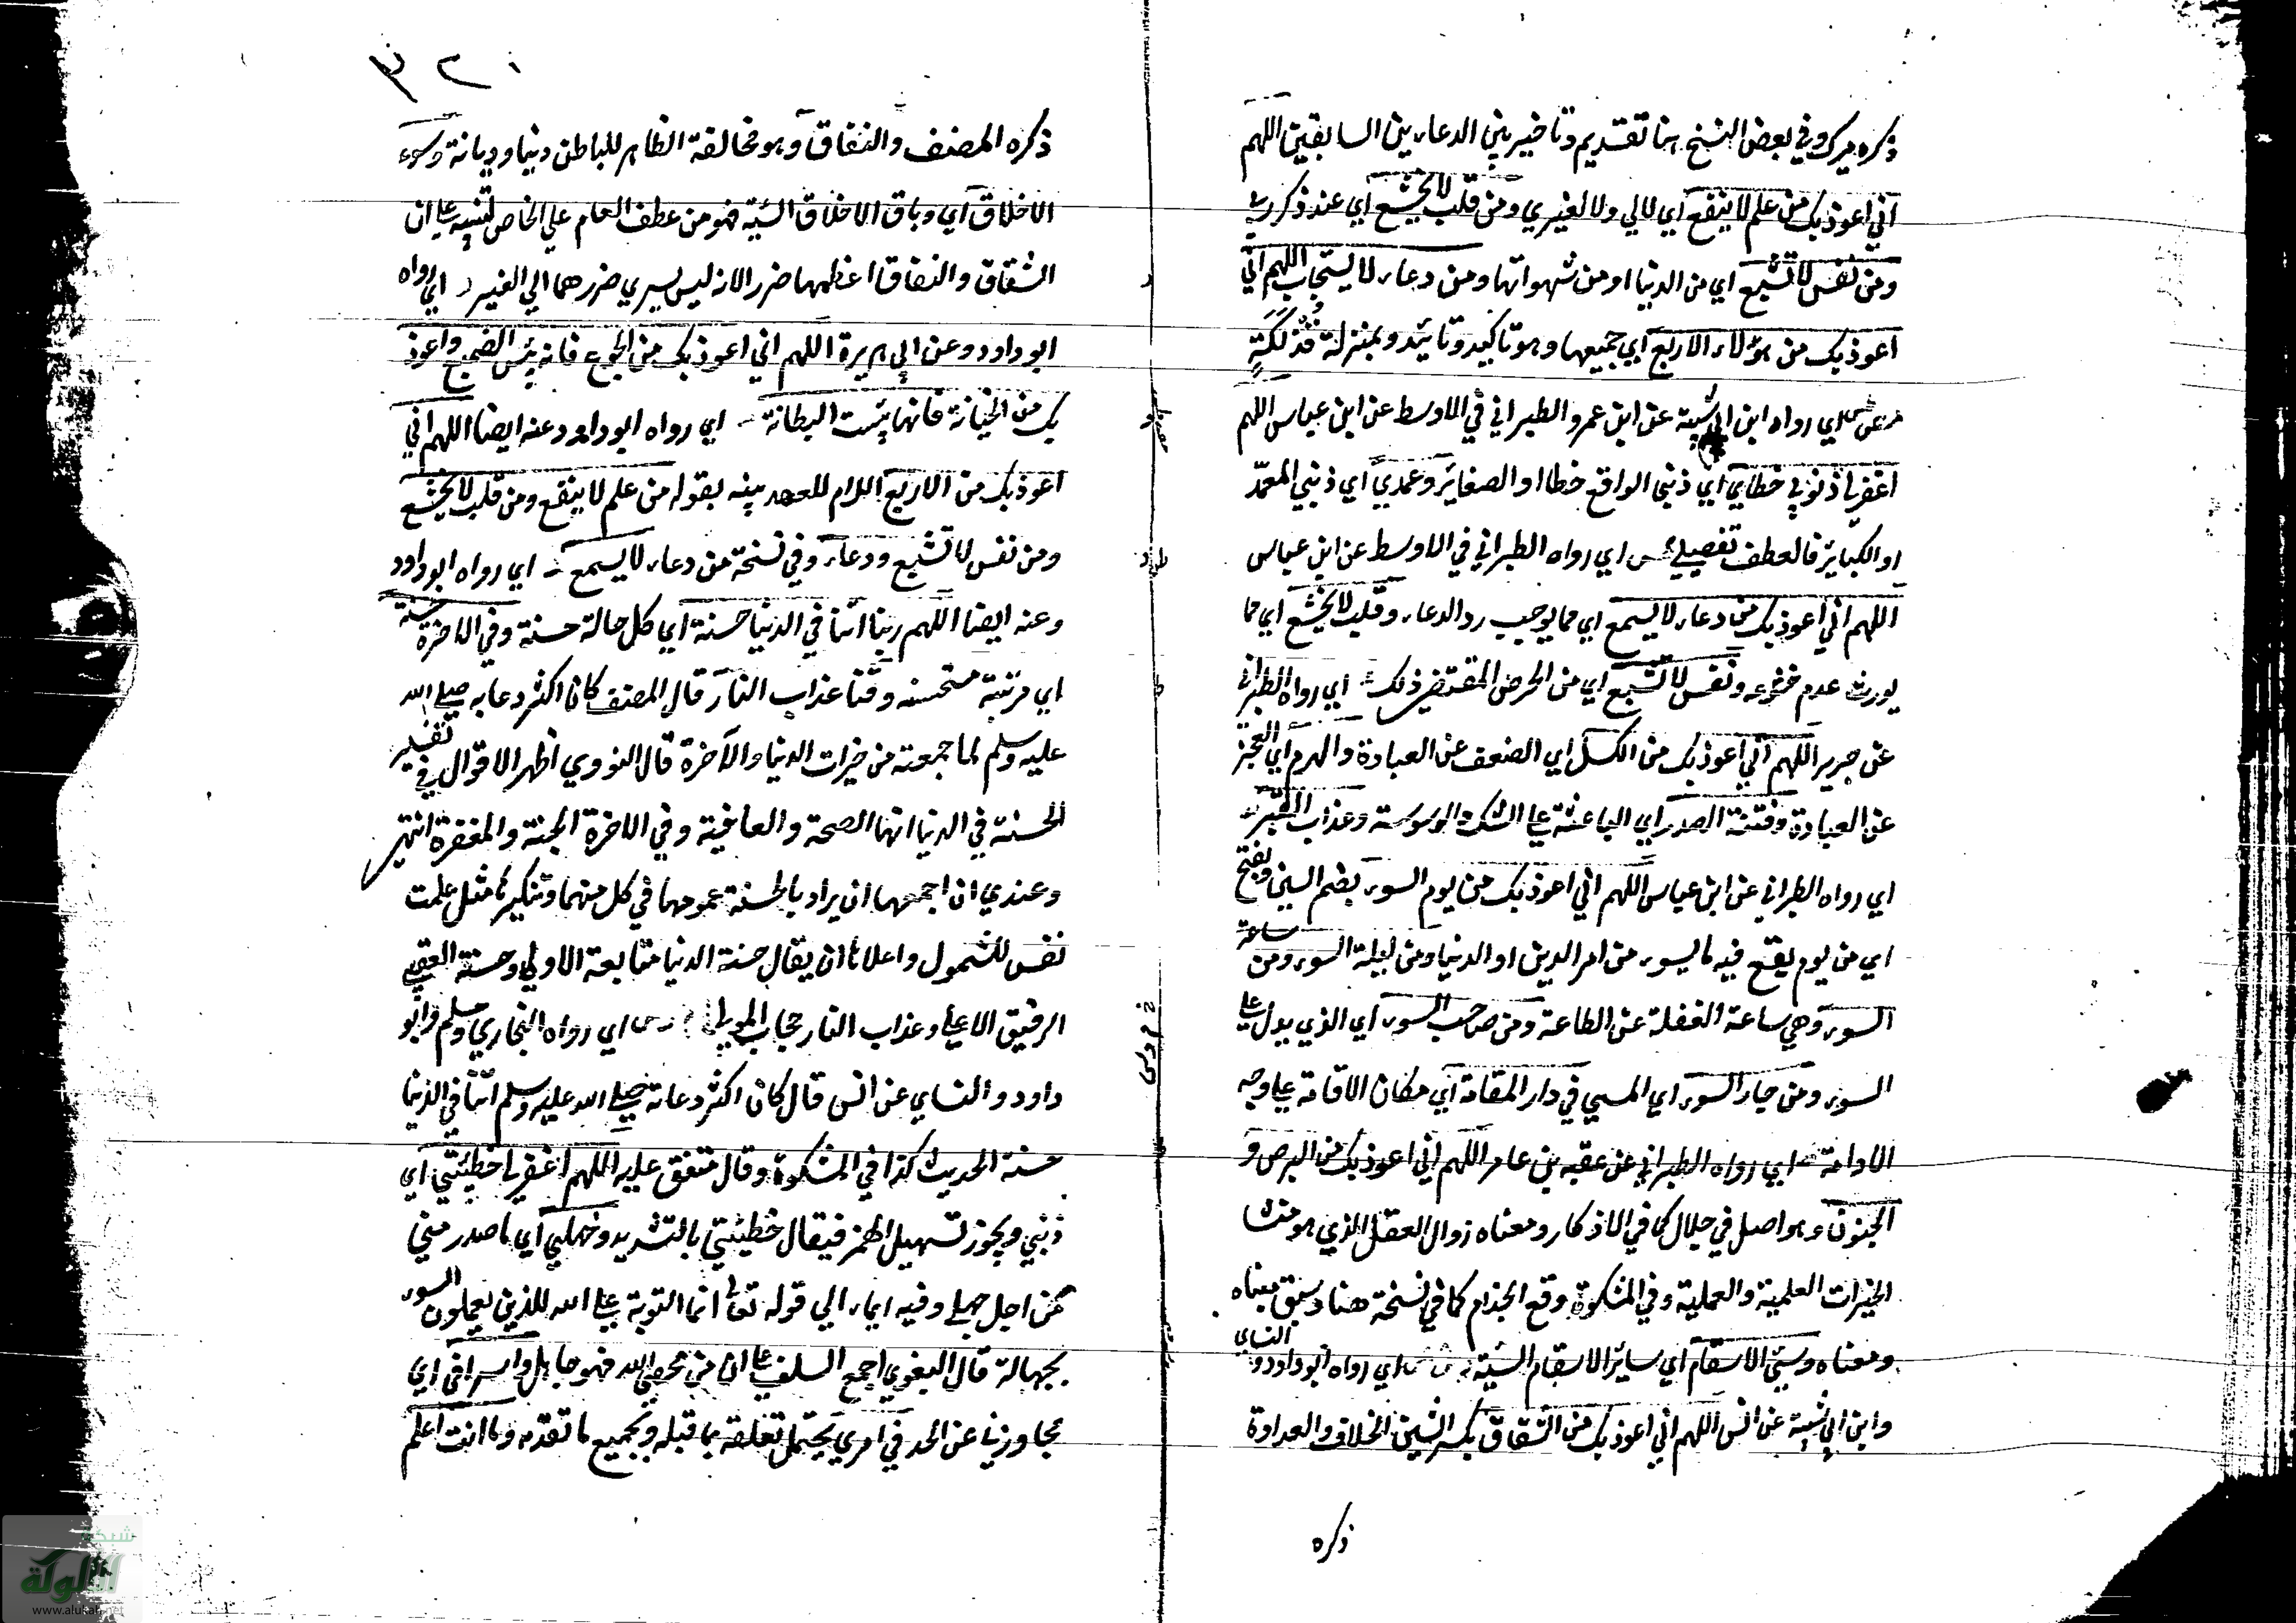 ذكره ميرك وفي بعض النسخ هنا تقديم وتاخير بين الدعاء بين السابقين اللهم
اني اعوذ بك من علم لا ينفع اي لا لي ولا لغيري ومن قلب لا يخشع اي عند ذكر ربي
ومن نفس لا تشبع اي من الدنيا او من شهواتها ومن دعاء لا يستجاب اللهم اني
اعوذ بك من هؤلاء الاربع اي جميعها وهو تاكيد وتائيد وبمنزلة فذلكة
مص طس اي رواه ابن ابي شيبة عن ابن عمر والطبراني في الاوسط عن ابن عباس اللهم
اغفر لي ذنوبي خطاي اي ذنبي الواقع خطا او الصغائر وعمدي اي ذنبي المعمد
او الكبائر فالعطف تفصيلي طس اي رواه الطبراني في الاوسط عن ابن عباس
اللهم اني اعوذ بك من دعاء لا يسمع اي مما يوجب رد الدعاء وقلب لا يخشع اي مما
يورث عدم خشوعه ونفس لا تشبع اي من الحرص المقتضي ذلك ط اي رواه الطبراني
عن جرير اللهم اني اعوذ بك من الكسل اي الضعف عن العبادة والهرم اي العجز
عن العبادة وفتنة الصدر اي الباعثة على الشك والوسوسة وعذاب القبر ط
اي رواه الطبراني عن ابن عباس اللهم اني اعوذ بك من يوم السوء بضم السين وبفتح
اي من يوم يقع فيه ما يسوء من امر الدين او الدنيا ومن ليلة السوء ومن ساعة
السوء وهي ساعة الغفلة عن الطاعة ومن صاحب السوء اي الذي يدل على
السوء ومن جار السوء اي المسيء في دار المقامة اي مكان الاقامة على وجه
الادامة ط اي رواه الطبراني عن عقبه بن عامر اللهم اني اعوذ بك من البرص و
الجنون وهو اصل في جلال كما في الاذكار ومعناه زوال العقل الذي هو منشا
الخيرات العلمية والعملية وفي المشكوة وقع الجذام كما في نسخة هنا وسبق مبناه
ومعناه وسيئ الاسقام اي سائر الاسقام السيئة د س مص اي رواه ابو داود والنساي
وابن ابي شيبة عن انس اللهم اني اعوذ بك من الشقاق بكسر الشين الخلاف والعداوة
ذكره
٣٢٠
ذكره المصنف والنفاق وهو مخالفة الظاهر للباطن دنيا وديانة وسوء
الاخلاق اي وباق الاخلاق السيئة فهو من عطف العام علي الخاص لتنبيه على ان
الشقاق والنفاق اعظمها ضررا لانه ليس يسري ضررهما الي الغير د اي رواه
ابو داود وعن ابي هريرة اللهم اني اعوذ بك من الجوع فانه بئس الضجيع واعوذ
بك من الخيانة فانها بئست البطانة د اي رواه ابو داود وعنه ايضا اللهم اني
اعوذ بك من الاربع اللام للعهد بينه بقوله من علم لا ينفع ومن قلب لا يخشع
ومن نفس لا تشبع ودعاء وفي نسخة من دعاء لا يسمع د اي رواه ابو داود
وعنه ايضا اللهم ربنا اتنا في الدنيا حسنة اي كل حالة حسنة وفي الاخرة حسنة
اي مرتبة مستحسنه وقنا عذاب النار قال المصنف كانا اكثر دعا به صلى الله
عليه وسلم لما جمعته من خيرات الدنيا والآخرة قال النووي اظهر الاقوال في تفسير
الحسنة في الدنيا انها الصحة والعافية وفي الاخرة الجنة والمغفرة انتهى
وعندي ان اجمعها ان يراد بالحسنة عمومها في كل منهما وتنكيرها مثل علمت
نفس للشمول واعلاها ان يقال حسنة الدنيا متابعة الاولى وحسنة العقبي
الرفيق الاعلى وعذاب النار حجاب المولى خ م د س اي رواه البخاري ومسلم وابو
داود والنساي عن انس قال كان اكثر دعائه صلى الله عليه وسلم اتنا في الدنيا
حسنة الحديث كذا في المشكوة وقال متفق عليه اللهم اغفر لي خطيئتي اي
ذنبي ويجوز تسهيل الهمز فيقال خطيئتي بالتشديد وجهلي اي ما صدر مني
من اجل جهلي وفيه ايماء الي قوله تعالى انما التوبة على الله للذين يعملون السوء
بجهالة قال البغوي اجمع السلف على ان من عصى الله فهو جاهل واسرافي اي
تجاوزي عن الحد في امري يحتمل تعلقه بما قبله وبجميع ما تقدم وما انت اعلم
شبكة
الألوكة
www.alukah.net